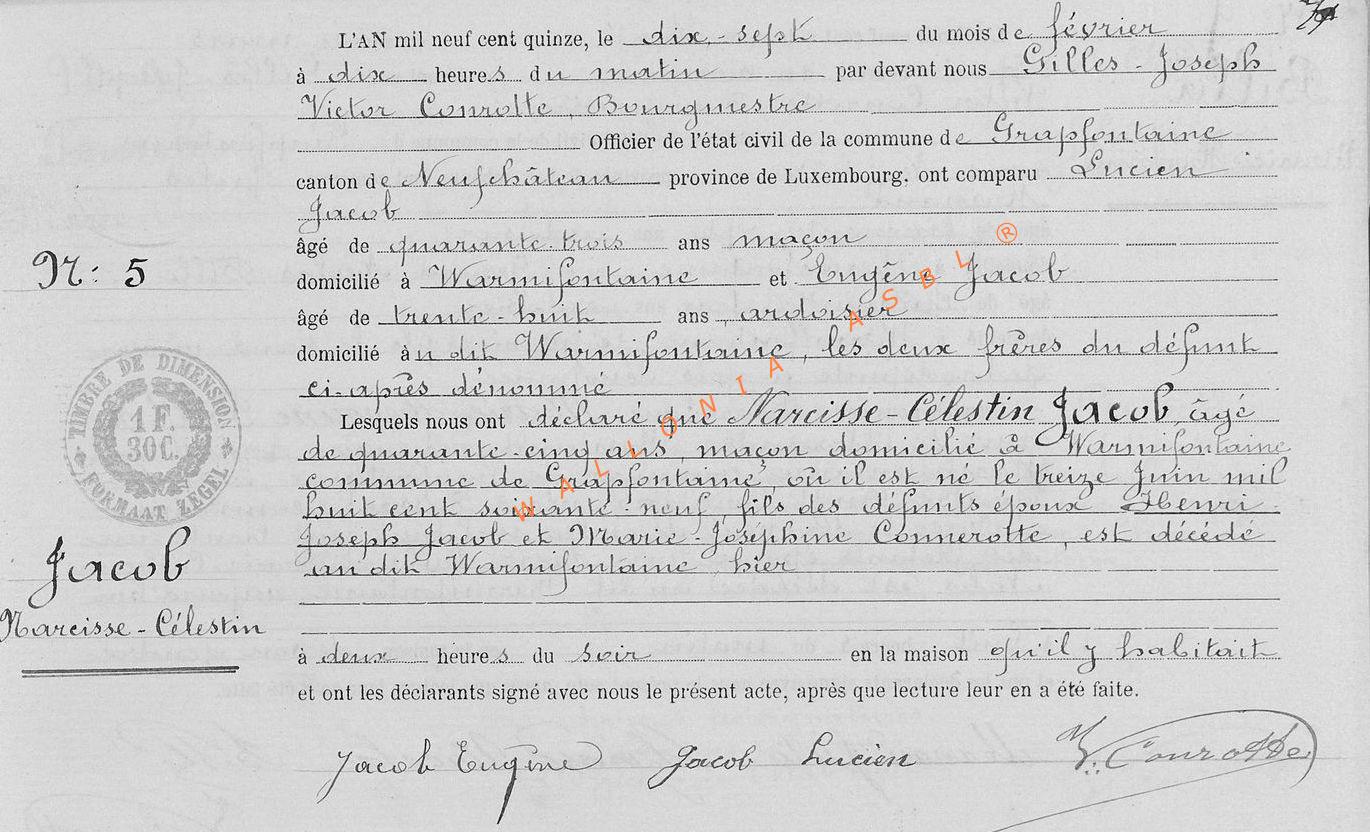 L'AN mil neuf cent quinze, le dix-sept du mois de février
à dix heures du matin par devant nous Gilles-Joseph
Victor Conrotte, Bourgmestre
Officier de l'état civil de la commune de Grapfontaine
canton de Neufchâteau province de Luxembourg, ont comparu Lucien
Jacob
âgé de quarante-trois ans maçon
domicilié à Warmifontaine et Eugène Jacob
âgé de trente-huit ans, ardoisier
domicilié àu dit Warmifontaine, les deux frères du défunt
ci-après dénommé
Lesquels nous ont déclaré que Narcisse-Célestin Jacob, âgé
de quarante-cinq ans, maçon domicilié à Warmifontaine
commune de Grapfontaine, où il est né le treize Juin mil
huit cent soixante-neuf fils des défunts époux Henri-
Joseph Jacob et Marie-Joséphine Connerotte, est décédé
au dit Warmifontaine hier
à deux heures du soir en la maison qu'il y habitait
et ont les déclarants signé avec nous le présent acte, après que lecture leur en a été faite.
Jacob Eugène Jacob Lucien V. Conrotte
N: 5
TIMBRE DE DIMENSION
1 F.
30 C.
FORMAAT ZEGEL
Jacob
Narcisse-Célestin
WALLONIA ASBL ®